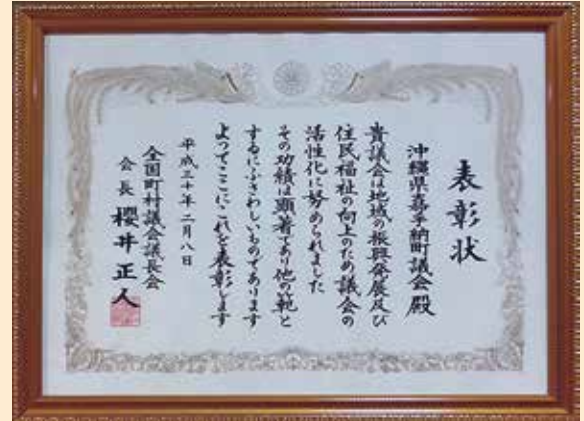 表彰状
沖縄県嘉手納町議会殿
貴議会は地域の振興発展及び
住民福祉の向上のため議会の
活性化に努められました
その功績は顕著であり他の範と
するにふさわしいものであります
よってここにこれを表彰します
平成三十年二月八日
全国町村議会議長会
会長 櫻井正人